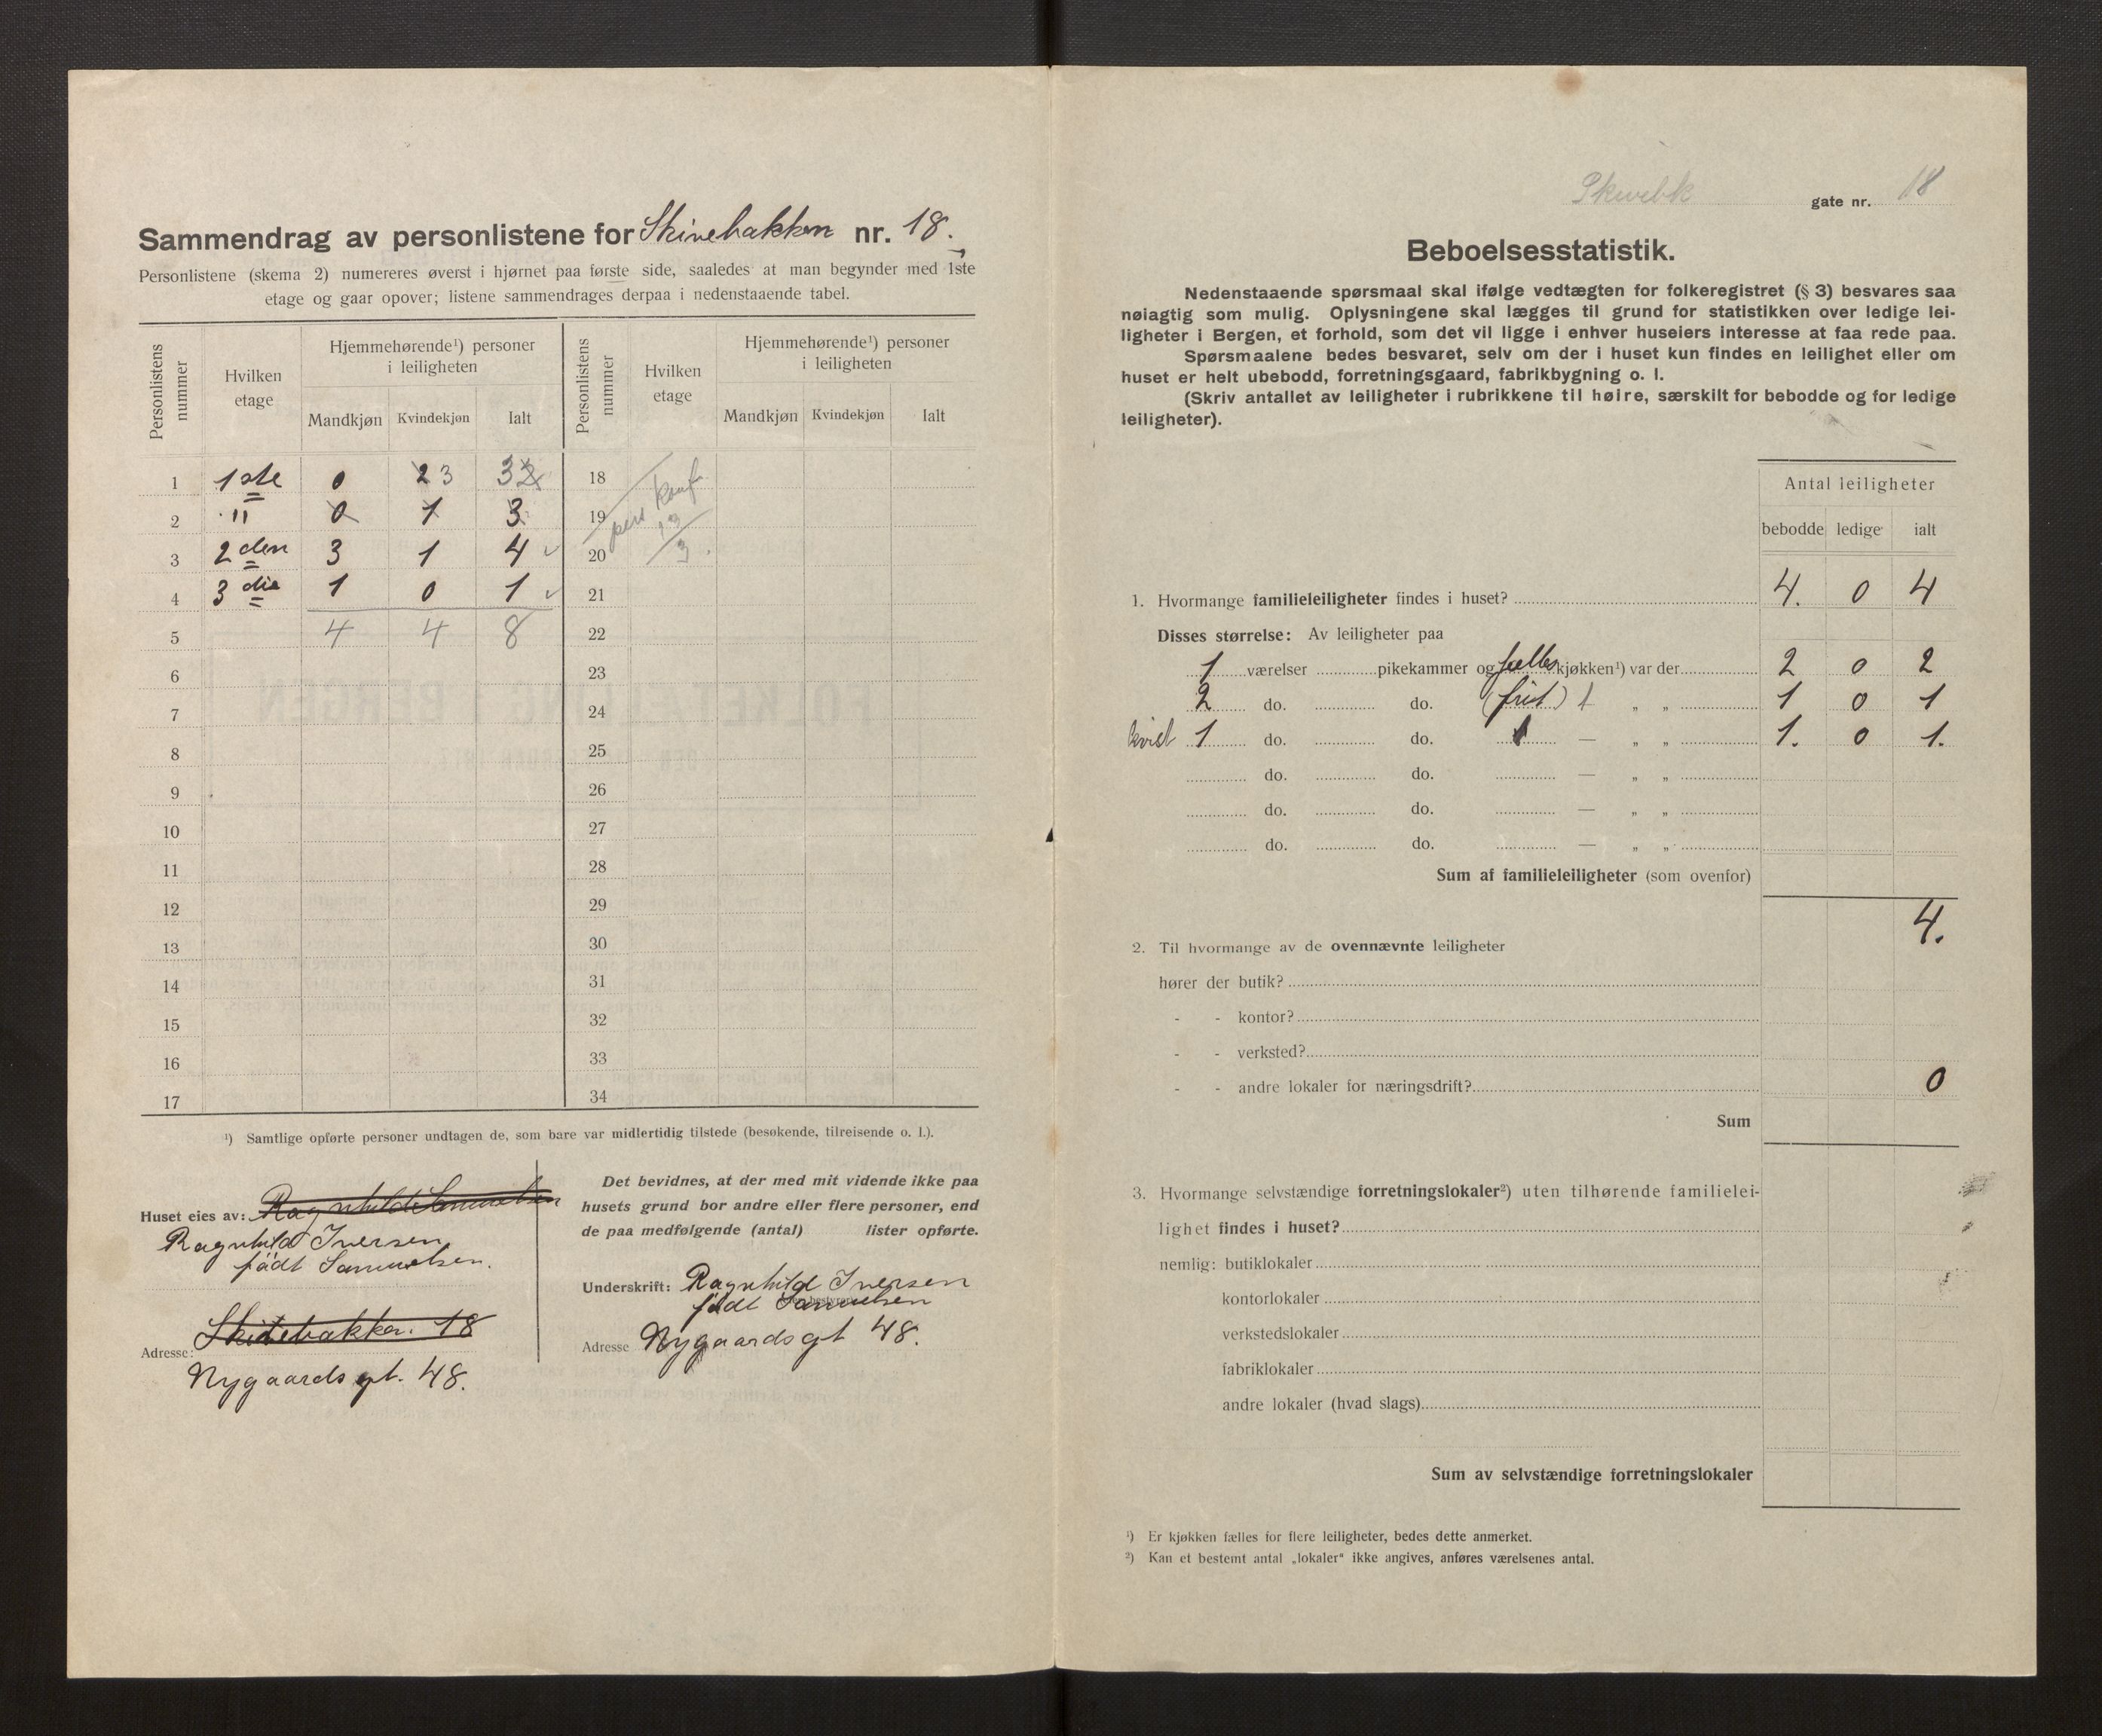 Sammendrag av personlistene for Skivebakken nr. 18.
Personlistene (skema 2) numereres øverst i hjørnet paa første side, saaledes at man begynder med 1ste
etage og gaar opover; listene sammendrages derpaa i nedenstaaende tabel.
Personlistens nummer
Hvilken etage
Hjemmehørende¹) personer i leiligheten
Mandkjøn Kvindekjøn Ialt
Personlistens nummer
Hvilken etage
Hjemmehørende¹) personer i leiligheten
Mandkjøn Kvindekjøn Ialt
1 1ste 0 2 3 3 2 18
2 " 0 1 3 19
3 2den 3 1 4 20
4 3die 1 0 1 21
5 4 4 8 22
6 23
7 24
8 25
9 26
10 27
11 28
12 29
13 30
14 31
15 32
16 33
17 34
¹) Samtlige opførte personer undtagen de, som bare var midlertidig tilstede (besøkende, tilreisende o. l.).
Huset eies av: Ragnhild Samuelsen
Ragnhild Iversen
født Samuelsen.
Adresse: Skivebakken 18
Nygaardsgt. 48.
Det bevidnes, at der med mit vidende ikke paa
husets grund bor andre eller flere personer, end
de paa medfølgende (antal) lister opførte.
Underskrift: Ragnhild Iversen
født Samuelsen
Adresse Nygaardsgt 48.
Skivebk gate nr. 18
Beboelsesstatistik.
Nedenstaaende spørsmaal skal ifølge vedtægten for folkeregistret (§ 3) besvares saa
nøiagtig som mulig. Oplysningene skal lægges til grund for statistikken over ledige lei-
ligheter i Bergen, et forhold, som det vil ligge i enhver huseiers interesse at faa rede paa.
Spørsmaalene bedes besvaret, selv om der i huset kun findes en leilighet eller om
huset er helt ubebodd, forretningsgaard, fabrikbygning o. l.
(Skriv antallet av leiligheter i rubrikkene til høire, særskilt for bebodde og for ledige
leiligheter).
Antal leiligheter
bebodde ledige ialt
1. Hvormange familieleiligheter findes i huset? 4. 0 4
Disses størrelse: Av leiligheter paa
1 værelser pikekammer og fælles kjøkken¹) var der 2 0 2
2 do. do. (frit) 1 " " 1 0 1
kvist 1 do. do. 1 — " " 1. 0 1.
do. do. — " "
do. do. — " "
do. do. — " "
Sum af familieleiligheter (som ovenfor)
4.
2. Til hvormange av de ovennævnte leiligheter
hører der butik?
- - kontor?
- - verksted?
- - andre lokaler for næringsdrift? 0
Sum
3. Hvormange selvstændige forretningslokaler²) uten tilhørende familielei-
lighet findes i huset?
nemlig: butiklokaler
kontorlokaler
verkstedslokaler
fabriklokaler
andre lokaler (hvad slags)
Sum av selvstændige forretningslokaler
¹) Er kjøkken fælles for flere leiligheter, bedes dette anmerket.
²) Kan et bestemt antal „lokaler" ikke angives, anføres værelsenes antal.